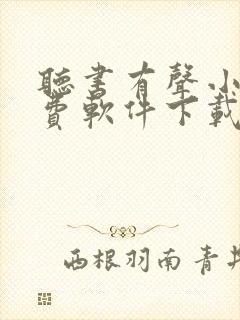 聽書有聲小
費軟件下載
西根羽南青